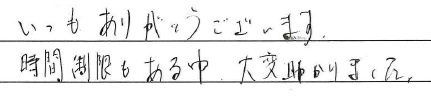 いつもありがとうございます.
時間制限もある中、大変助かりました。